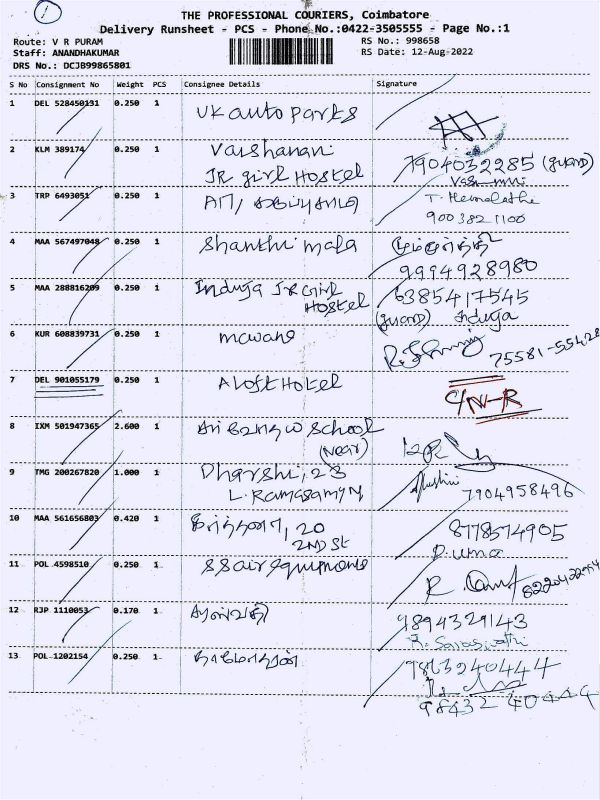 1
THE PROFESSIONAL COURIERS, Coimbatore
Delivery Runsheet - PCS - Phone No.:0422-3505555 - Page No.:1
Route: V R PURAM
RS No.: 998658
Staff: ANANDHAKUMAR
RS Date: 12-Aug-2022
DRS No.: DCJB99865801
S No Consignment No Weight PCS Consignee Details Signature
1 DEL 528450131 0.250 1 VK auto parks
2 KLM 389174 0.250 1 Varshanani
JR girl Hostel
7904032285 (guard)
3 TRP 6493051 0.250 1
T. Hemalathi
9003821100
4 MAA 567497048 0.250 1 Shanthi mala
9994928980
5 MAA 288816209 0.250 1 Induja JR Girl
Hostel
6385417545
(guard) Induja
6 KUR 608839731 0.250 1 mcwane
75581-55428
7 DEL 901055179 0.250 1 Aloft Hotel C/N-R
8 IXM 501947365 2.600 1 School
(Near)
9 TMG 200267820 1.000 1 Dharshi, 23
L. Ramasamy N
7904958496
10 MAA 561656803 0.420 1 20
2ND St
8778574905
P. uma
11 POL 4598510 0.250 1 SS air equipments
12 RJP 1110053 0.170 1 சரஸ்வதி
9894329143
R. Saraswathi
13 POL 1202154 0.250 1 தாமோதரன்
9863240444
98432 40444